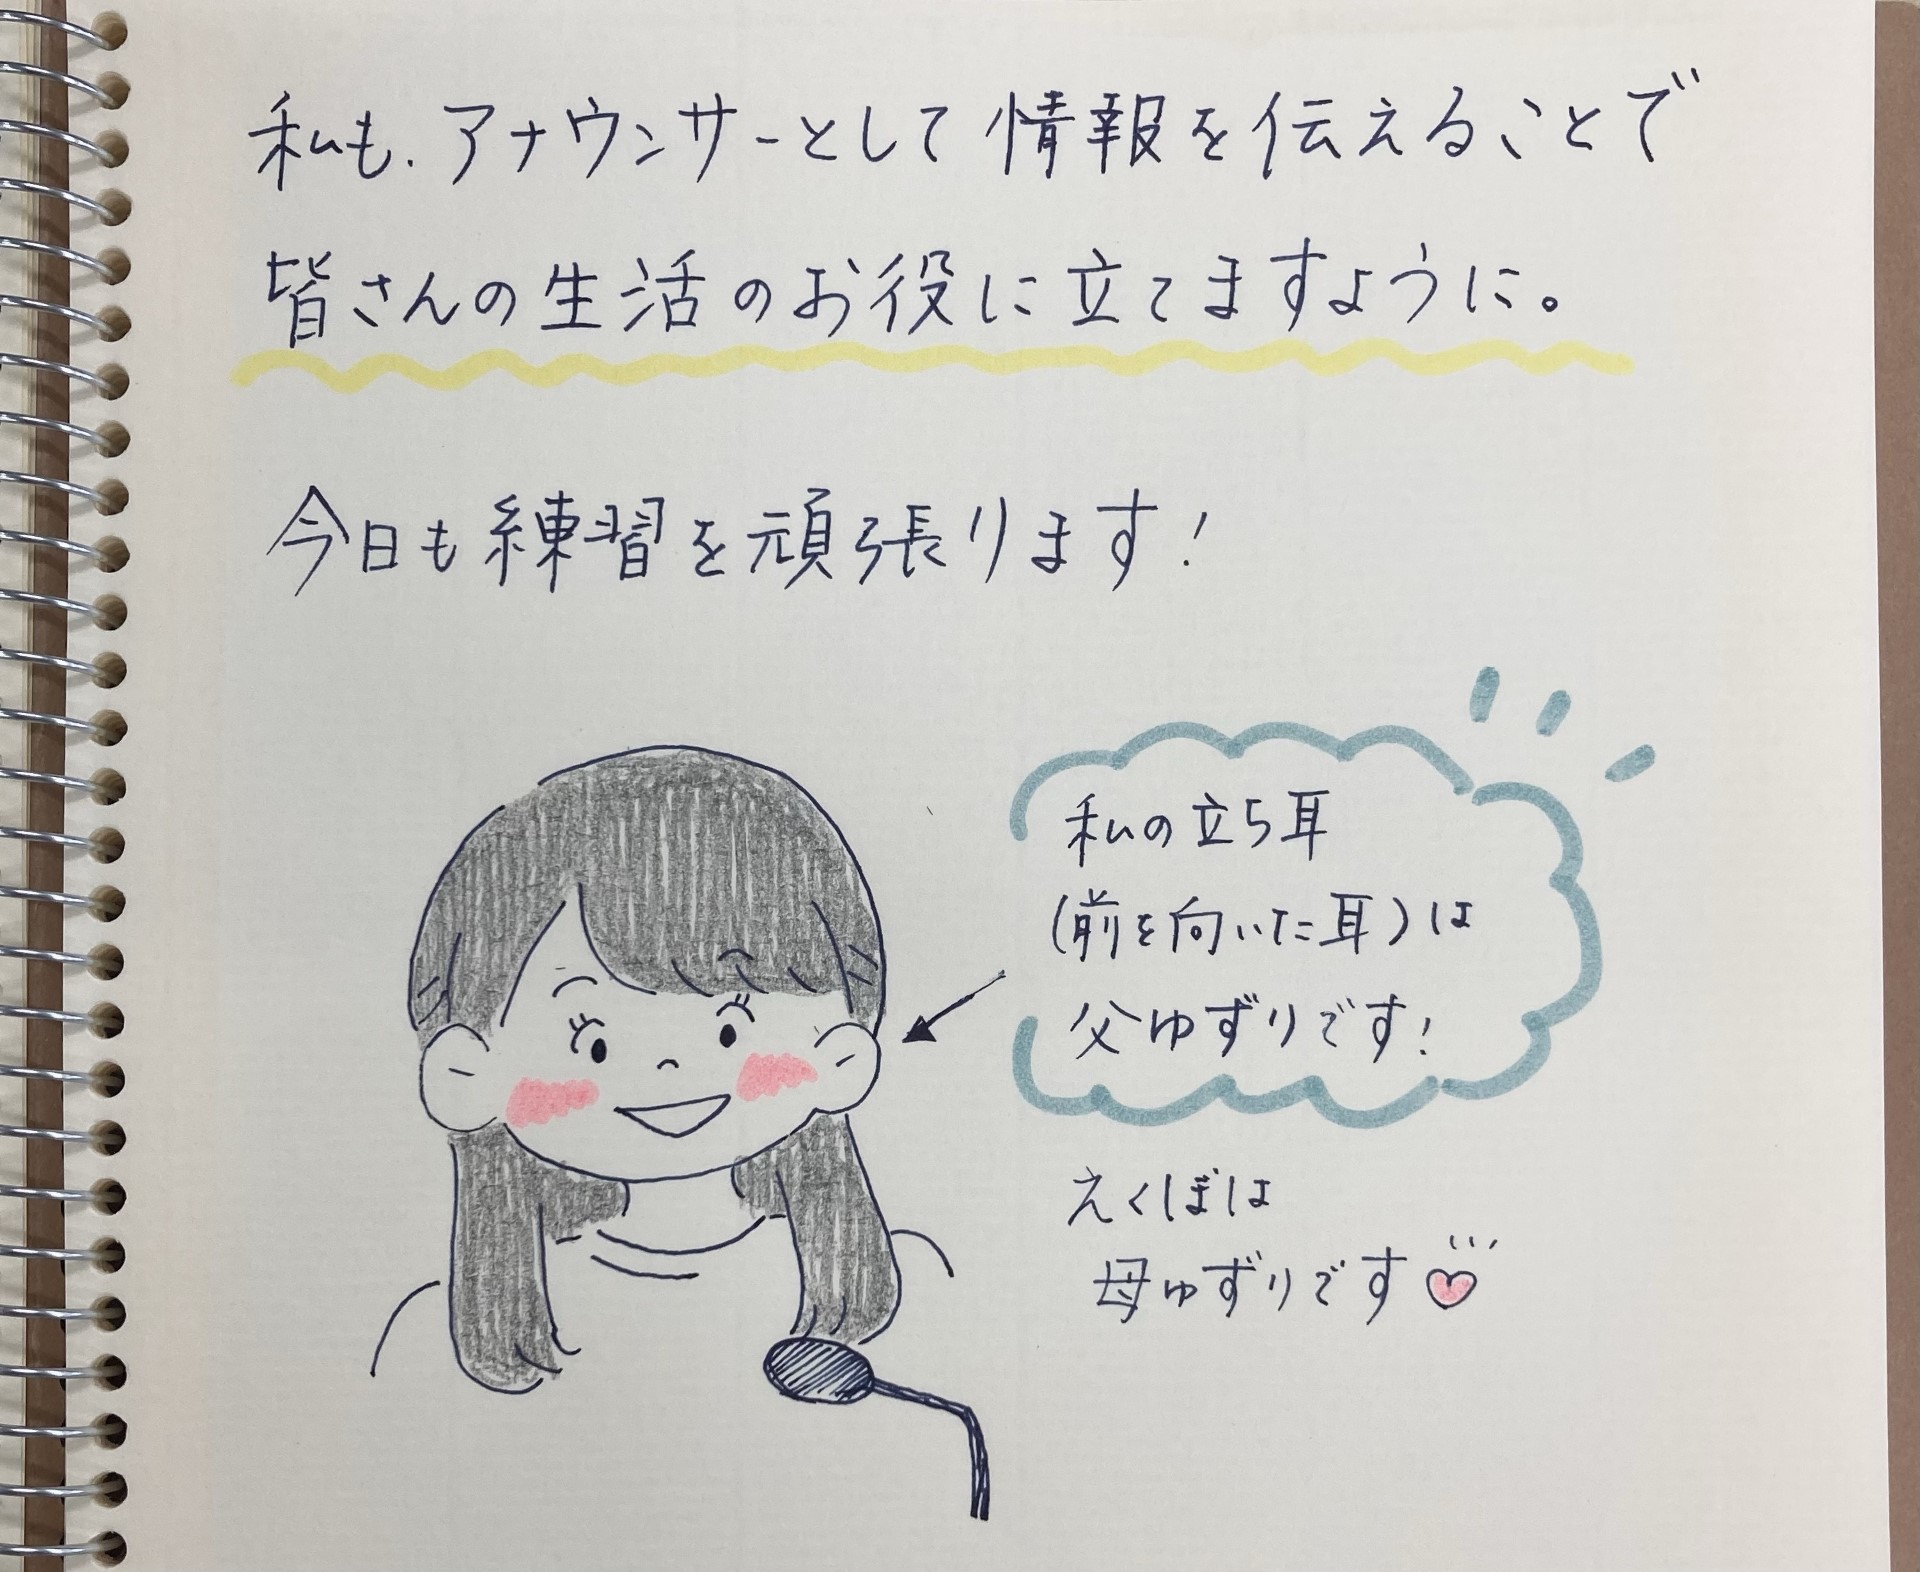 私も、アナウンサーとして情報を伝えることで
皆さんの生活のお役に立てますように。
今日も練習を頑張ります!
私の立ち耳
(前を向いた耳)は
父ゆずりです!
えくぼは
母ゆずりです♡